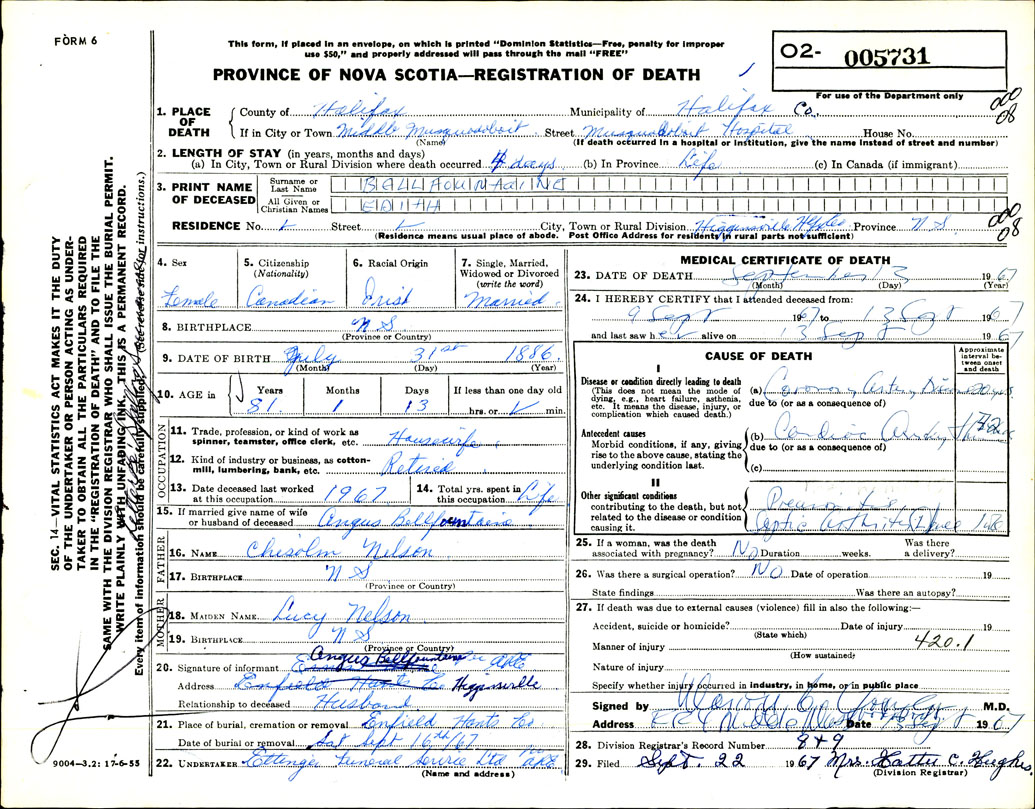 FORM 6
This form, if placed in an envelope, on which is printed "Dominion Statistics—Free, penalty for improper
use $50," and properly addressed will pass through the mail "FREE"
PROVINCE OF NOVA SCOTIA—REGISTRATION OF DEATH
O2- 005731
For use of the Department only
000
08
1. PLACE OF DEATH County of Halifax Municipality of Halifax Co.
If in City or Town Middle Musquodoboit Street Musquodoboit Hospital House No.
(Name) (If death occurred in a hospital or institution, give the name instead of street and number)
2. LENGTH OF STAY (in years, months and days)
(a) In City, Town or Rural Division where death occurred 4 days (b) In Province Life (c) In Canada (if immigrant)
3. PRINT NAME OF DECEASED
Surname or Last Name
All Given or Christian Names EDITH
RESIDENCE No. Street City, Town or Rural Division Higginsville Province N S.
(Residence means usual place of abode. Post Office Address for residents in rural parts not sufficient)
000
08
SEC. 14—VITAL STATISTICS ACT MAKES IT THE DUTY
OF THE UNDERTAKER OR PERSON ACTING AS UNDER-
TAKER TO OBTAIN ALL THE PARTICULARS REQUIRED
IN THE "REGISTRATION OF DEATH" AND TO FILE THE
SAME WITH THE DIVISION REGISTRAR WHO SHALL ISSUE THE BURIAL PERMIT.
WRITE PLAINLY WITH UNFADING INK. THIS IS A PERMANENT RECORD.
Every item of information should be carefully supplied. (See reverse side for instructions.)
4. Sex
Female
5. Citizenship
(Nationality)
Canadian
6. Racial Origin
Irish
7. Single, Married,
Widowed or Divorced
(write the word)
Married.
8. BIRTHPLACE N S
(Province or Country)
9. DATE OF BIRTH July 31st 1886.
(Month) (Day) (Year)
10. AGE in Years Months Days If less than one day old
81. 1 13 hrs. or min.
OCCUPATION
11. Trade, profession, or kind of work as
spinner, teamster, office clerk, etc. Housewife.
12. Kind of industry or business, as cotton-
mill, lumbering, bank, etc. Retired
13. Date deceased last worked
at this occupation 1967
14. Total yrs. spent in
this occupation Life
15. If married give name of wife
or husband of deceased Angus Bellfountaine
FATHER
16. NAME Chisolm Nelson.
17. BIRTHPLACE N S
(Province or Country)
MOTHER
18. MAIDEN NAME Lucy Nelson
19. BIRTHPLACE N S
(Province or Country)
20. Signature of informant Angus Bellfountaine
Address Enfield Hants Co Higginsville
Relationship to deceased Husband
21. Place of burial, cremation or removal Enfield Hants Co
Date of burial or removal Sat Sept 16th/67
22. UNDERTAKER Ettinger Funeral Service Ltd
(Name and address)
9004—3.2: 17-6-55
MEDICAL CERTIFICATE OF DEATH
23. DATE OF DEATH September 13 1967
(Month) (Day) (Year)
24. I HEREBY CERTIFY that I attended deceased from:
9 Sept 1967 to 13 Sept 1967
and last saw her alive on 13 Sept 1967
CAUSE OF DEATH
Approximate interval between onset and death
I
Disease or condition directly leading to death
(This does not mean the mode of
dying, e.g., heart failure, asthenia,
etc. It means the disease, injury, or
complication which caused death.)
(a) Coronary
due to (or as a consequence of)
Antecedent causes
Morbid conditions, if any, giving
rise to the above cause, stating the
underlying condition last.
(b) Cardiac
due to (or as a consequence of)
(c)
II
Other significant conditions
contributing to the death, but not
related to the disease or condition
causing it.
Septic Arthritis Knee
25. If a woman, was the death
associated with pregnancy? No Duration weeks. Was there
a delivery?
26. Was there a surgical operation? No Date of operation 19
State findings Was there an autopsy?
27. If death was due to external causes (violence) fill in also the following:—
Accident, suicide or homicide? Date of injury 19
(State which)
Manner of injury 420.1
(How sustained)
Nature of injury
Specify whether injury occurred in industry, in home, or in public place
Signed by M.D.
Address Date Sept 1967
28. Division Registrar's Record Number 849
29. Filed Sept. 22 1967 Mrs. Hattie C. Hughes.
(Division Registrar)